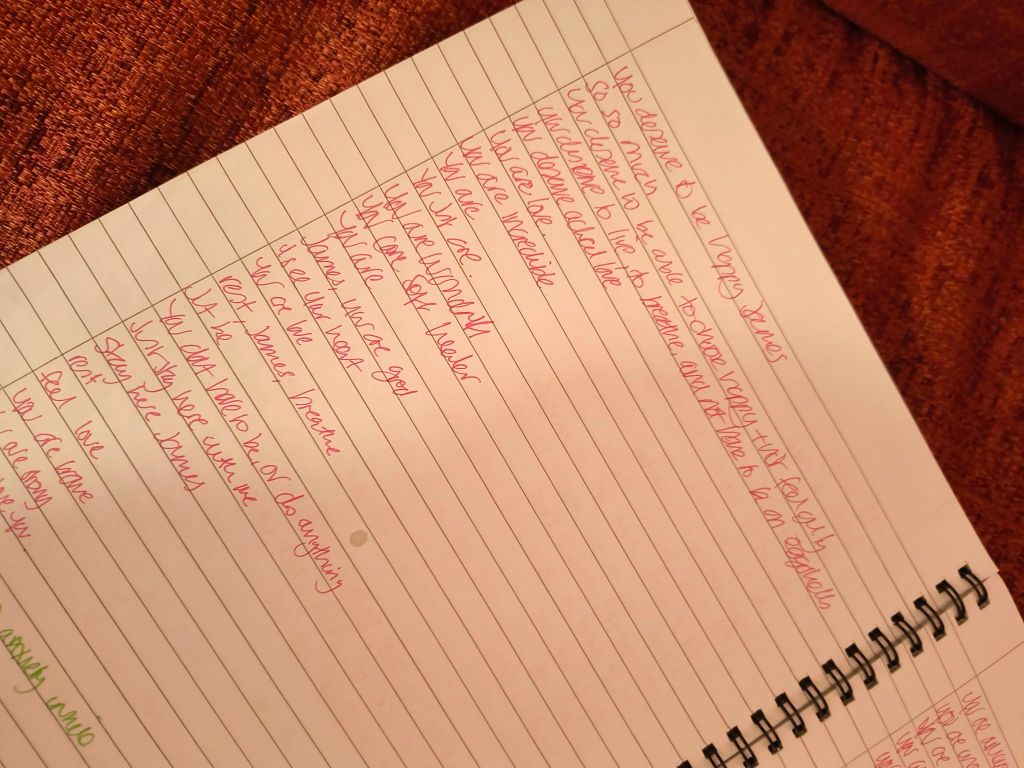 You deserve to be happy James
So so much
You deserve to be able to chose happy + not feel guilty
You deserve to live, to breathe, and not have to be on eggshells
You deserve actual love
You are love
You are incredible
You are
You just are.
You are wonderful
You are
James, you are good
I see your heart
You are me
rest, James, breathe
Just be
You dont have to be or do anything
Just stay here with me
Stay here James
rest
feel love
You are brave
are strong
you
anxiety
You are
you are
You are